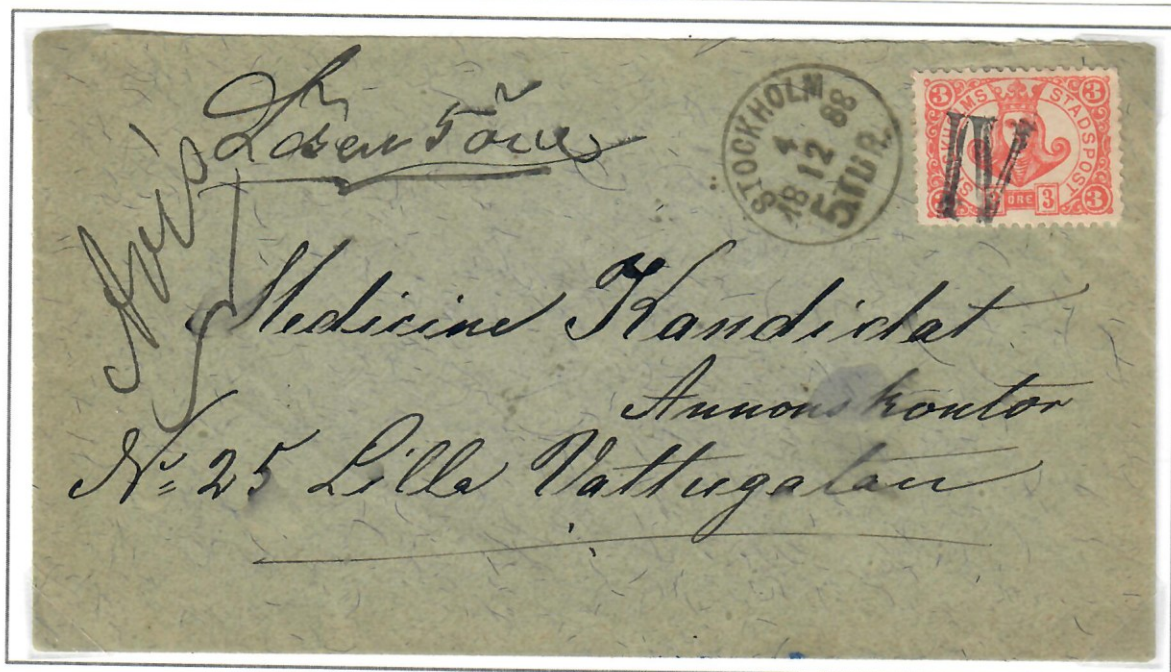 Lösen 5 öre
Avis
STOCKHOLM
4
12
88
5 TUR.
3 STOCKHOLMS STADSPOST 3
3 ÖRE 3 3
IV
Medicine Kandidat
Annonskontor
No 25 Lilla Vattugatan